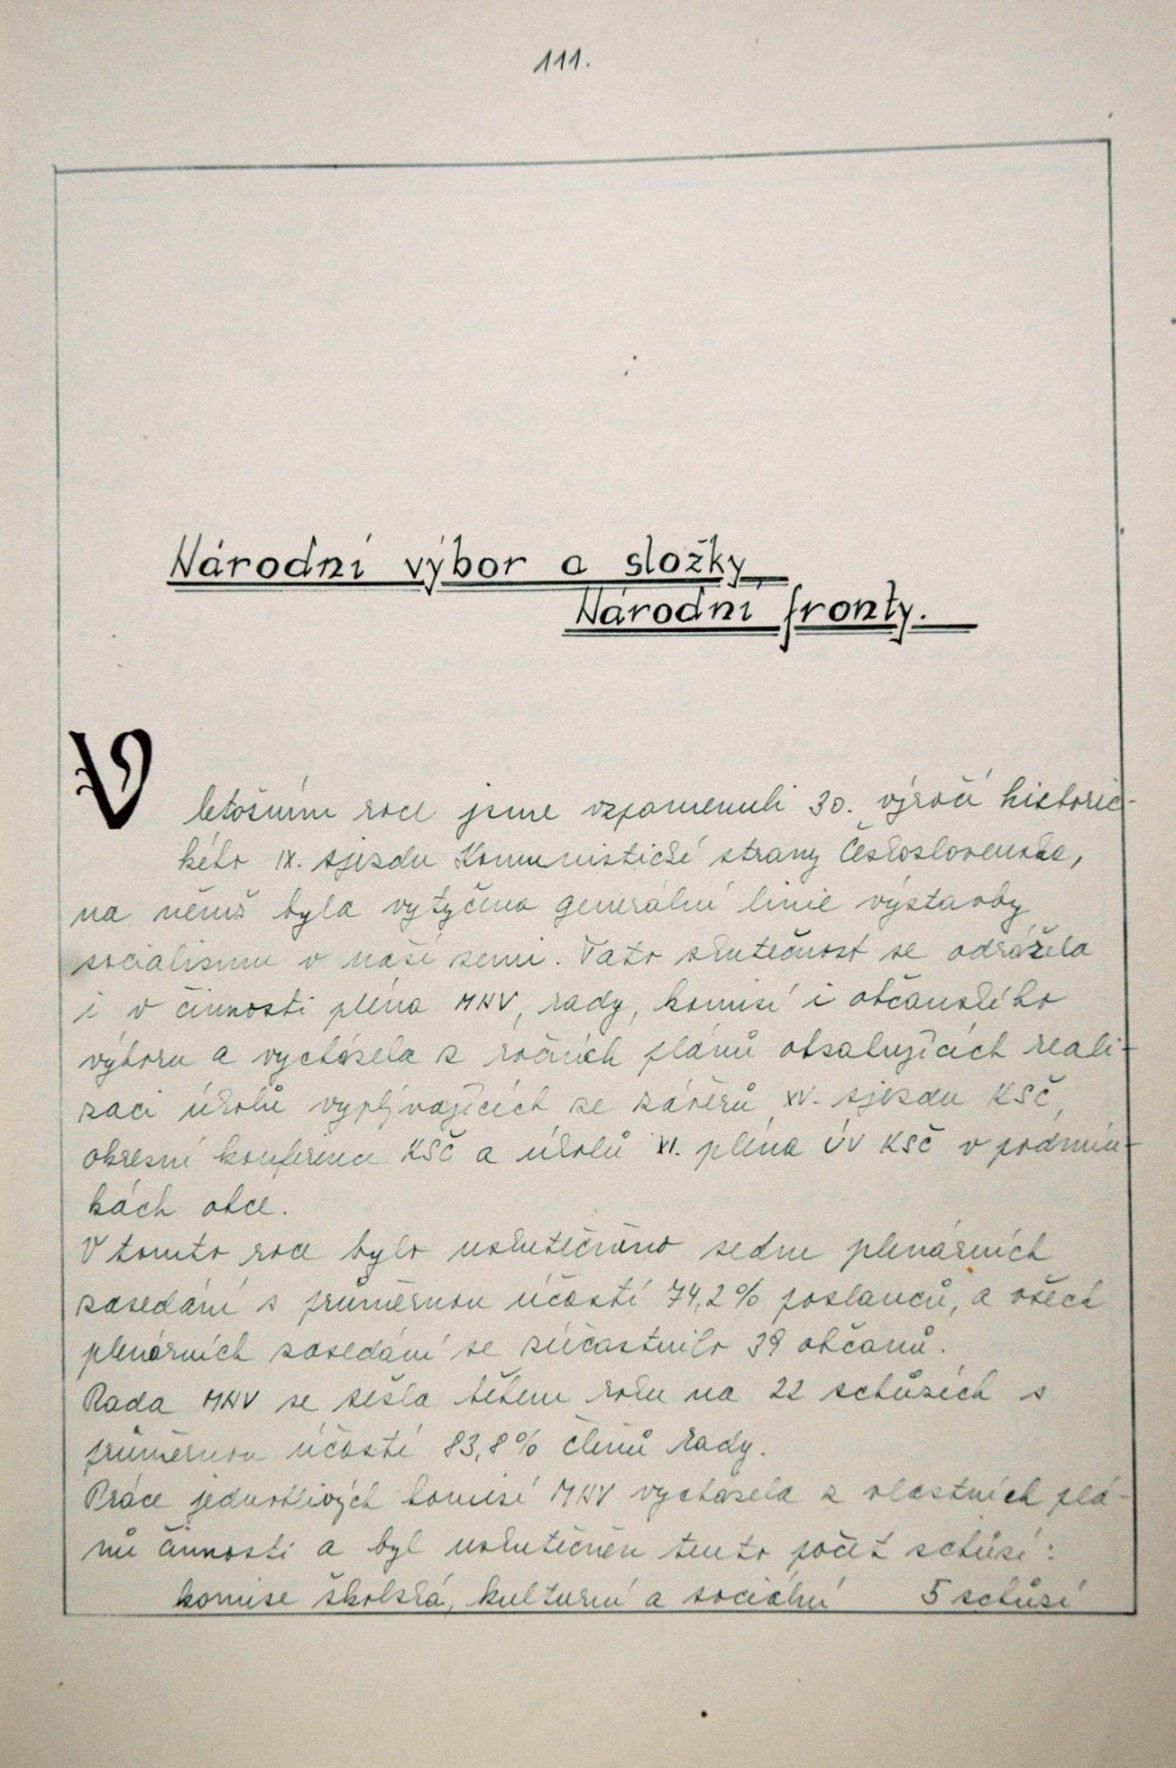 111.
Národní výbor a složky
Národní fronty.
V letošním roce jsme vzpomenuli 30. výročí historic-
kého IX. sjezdu Komunistické strany Československa,
na němž byla vytyčena generální linie výstavby
socialismu v naší zemi. Tato skutečnost se odrážela
i v činnosti pléna MNV, rady, komisí i občanského
výboru a vycházela z ročních plánů obsahujících reali-
zaci úkolů vyplývajících ze závěrů XV. sjezdu KSČ,
okresní konference KSČ a úkolů XI. pléna ÚV KSČ v podmín-
kách obce.
V tomto roce bylo uskutečněno sedm plenárních
zasedání s průměrnou účastí 74,2% poslanců, a všech
plenárních zasedání se zúčastnilo 39 občanů.
Rada MNV se sešla během roku na 22 schůzích s
průměrnou účastí 83,8% členů rady.
Práce jednotlivých komisí MNV vycházela z vlastních plá-
nů činnosti a byl uskutečněn tento počet schůzí:
komise školská, kulturní a sociální 5 schůzí